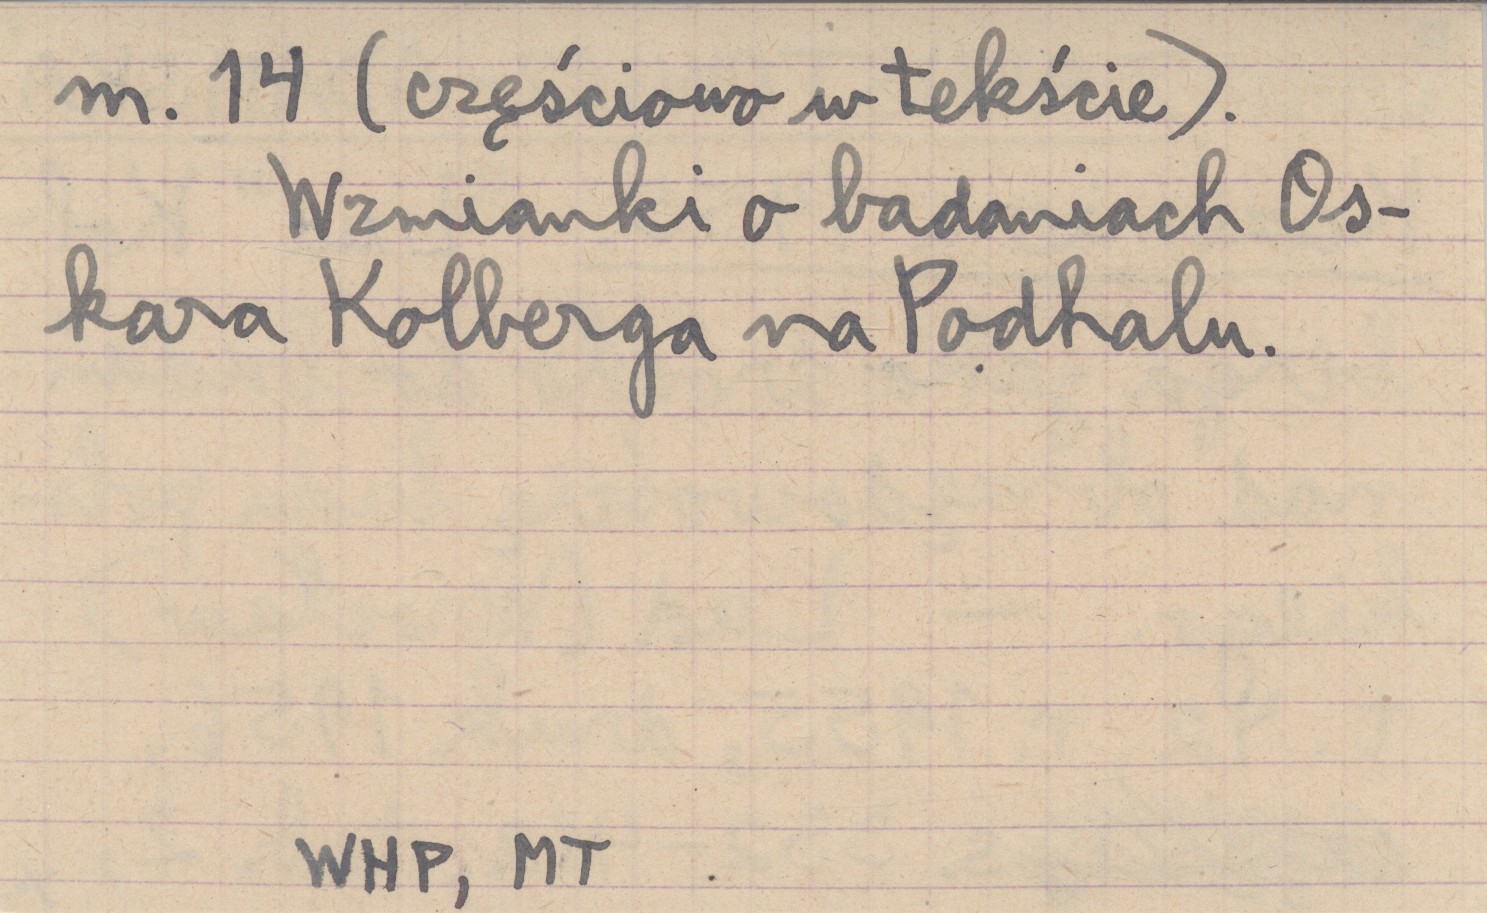 m. 14 (częściowo w tekście).
Wzmianki o badaniach Os-
kara Kolberga na Podhalu.
WHP, MT